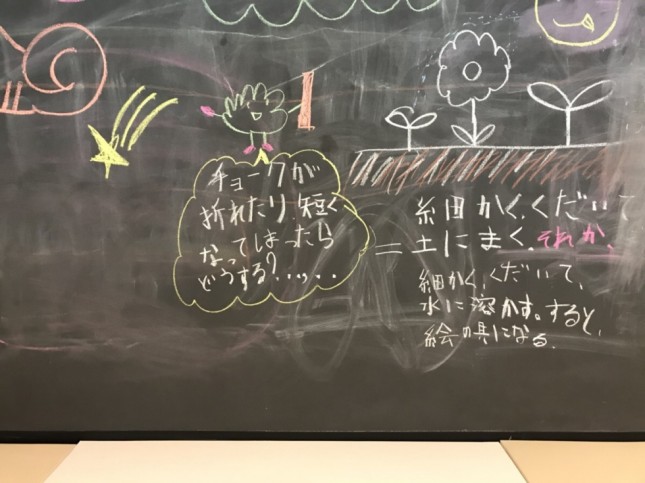 チョークが
折れたり、短く、
なってしまったら
どうする?.....
=
細かく、くだいて
土にまく。それか、
細かく、くだいて、
水に溶かす。すると、
絵の具になる。